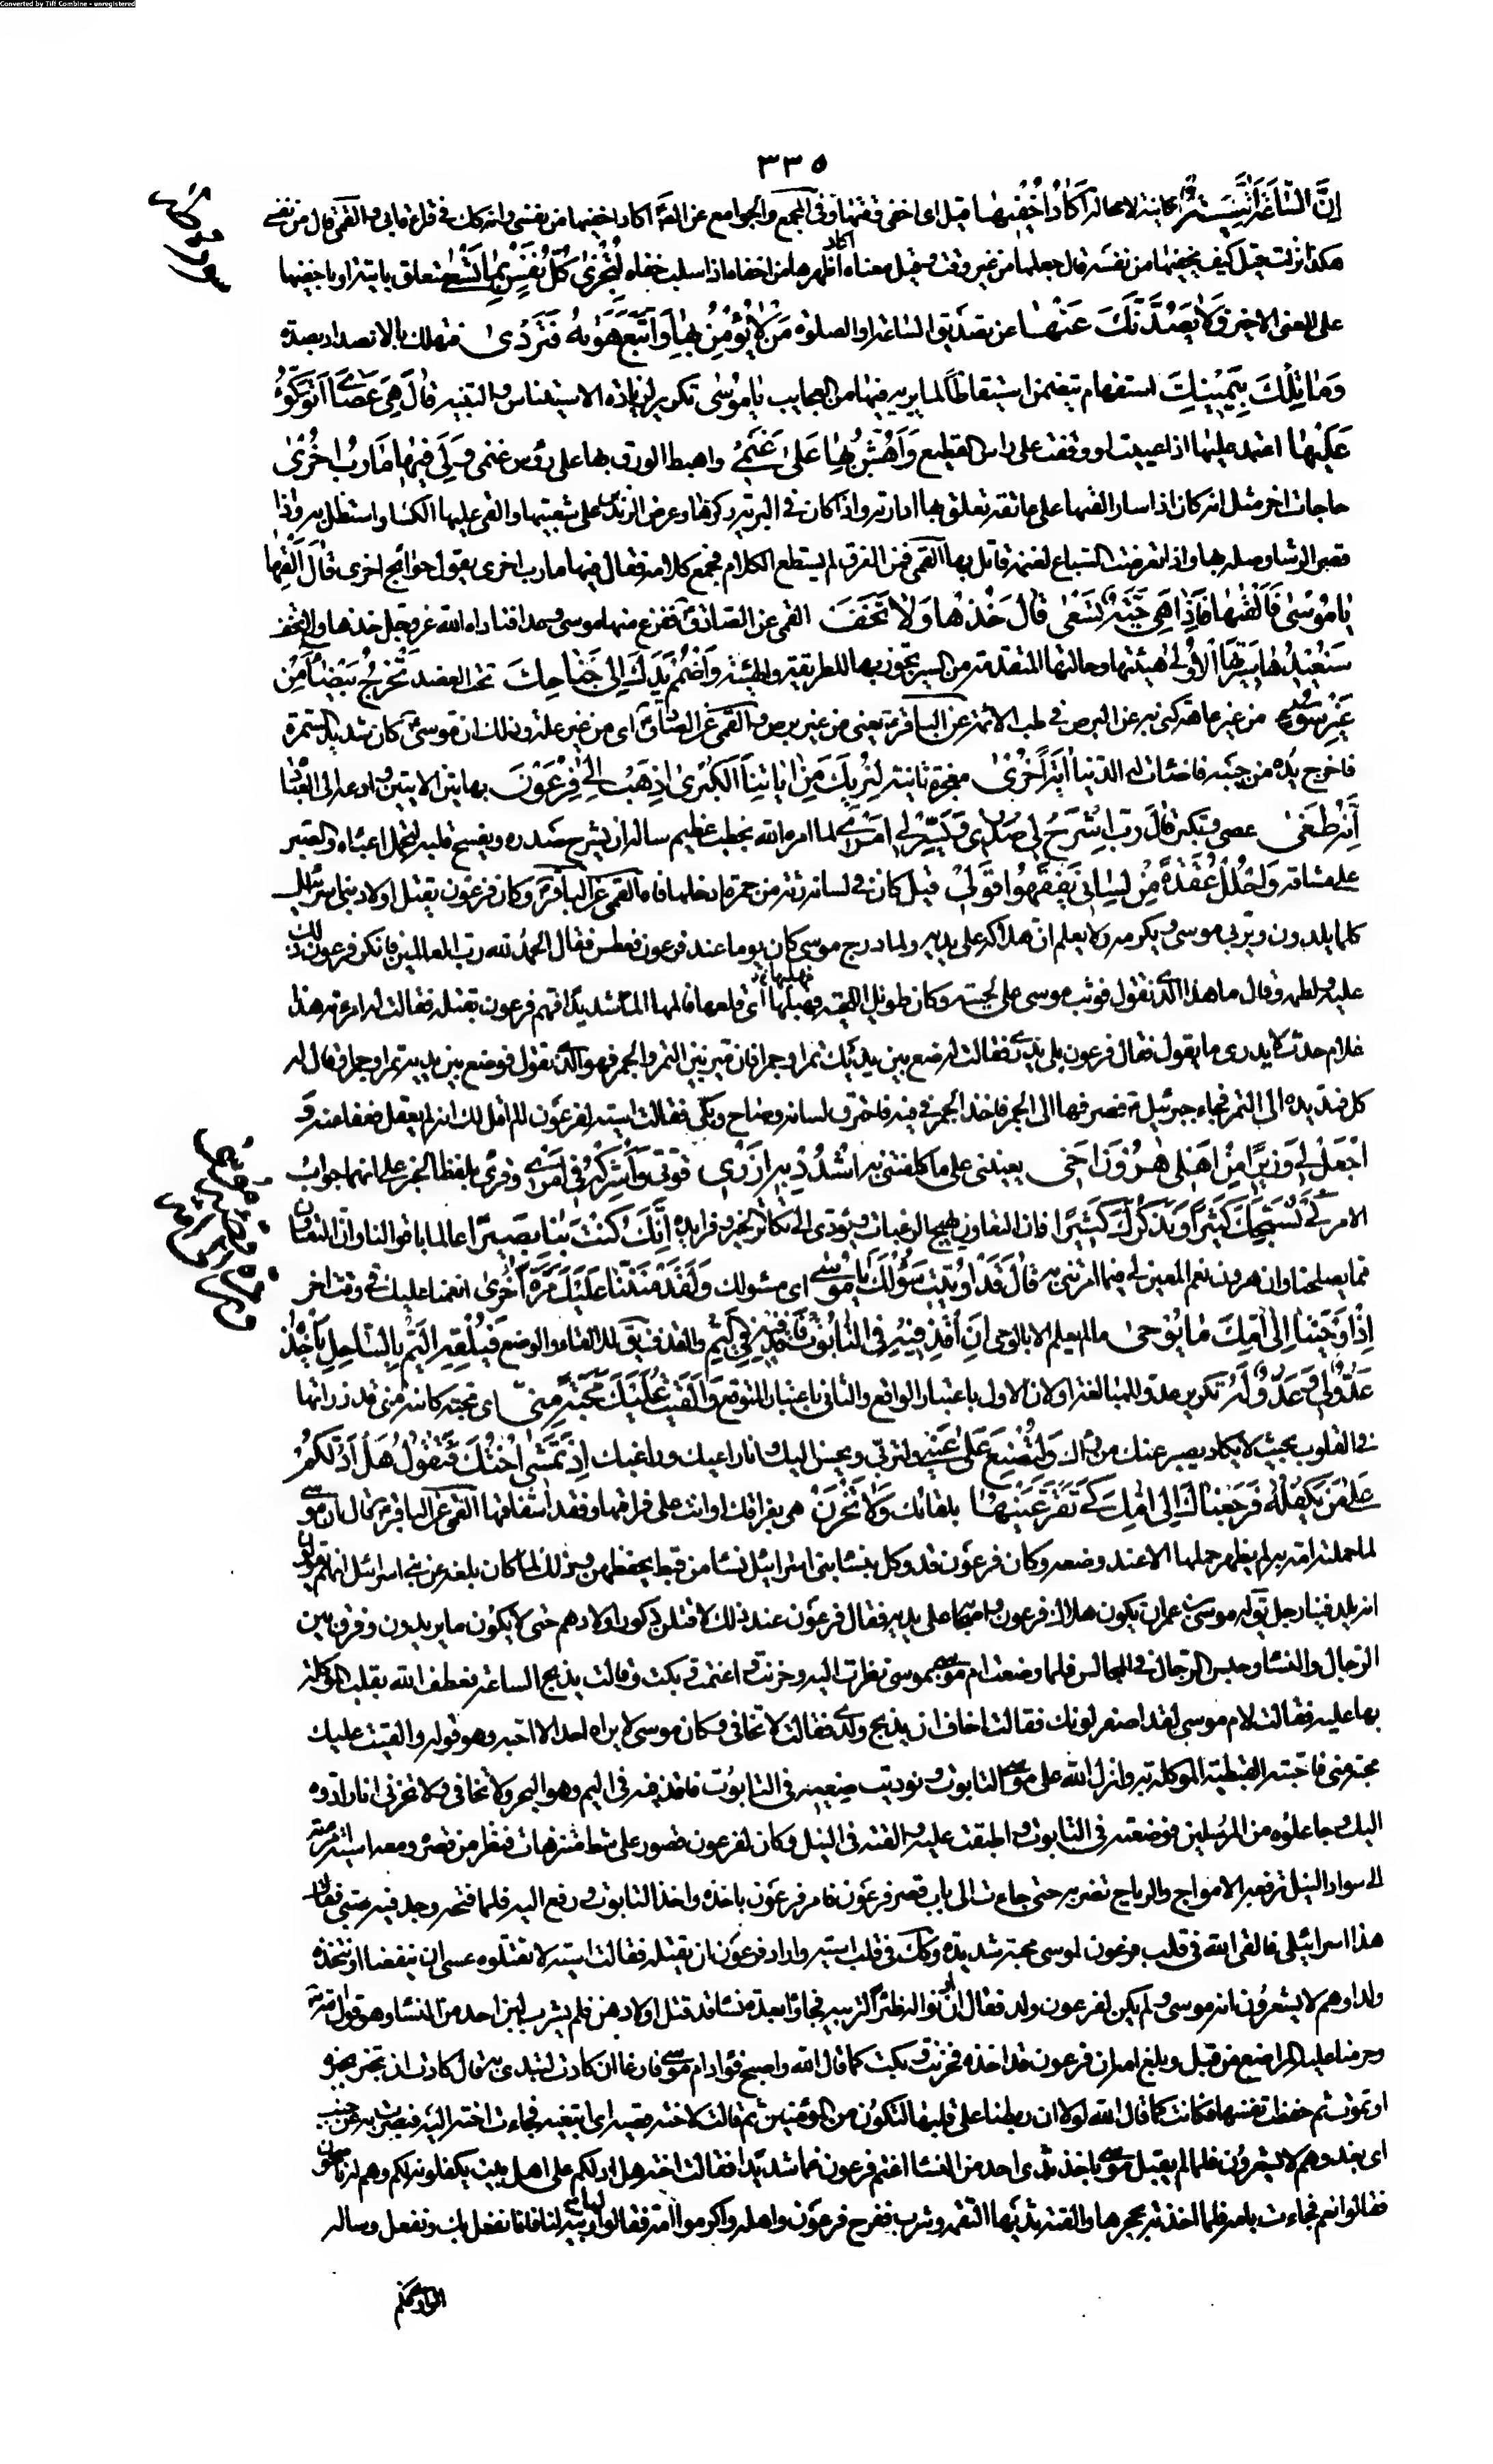 Converted by Tiff Combine - unregistered
٣٣٥
إِنَّ السَّاعَةَ آتِيَةٌ كاينة لا محالة أَكَادُ أُخْفِيهَا قيل اى اخفى وقتها وفى المجمع والجوامع عن الصّ اكاد اخفيها من نفسى وانه كك فى قراءة ابى والقمى قال من نفسى
هكذا نزلت قيل كيف يخفيها من نفسه قال جعلها من غير وقت وقيل معناه اكاد اظهرها من اخفاه اذا سلب خفاه لِتُجْزَىٰ كُلُّ نَفْسٍ بِمَا تَسْعَىٰ متعلق باتية او باخفيها
على المعنى الاخير فَلَا يَصُدَّنَّكَ عَنْهَا عن تصديق الساعة او الصلوة مَنْ لَا يُؤْمِنُ بِهَا وَاتَّبَعَ هَوَاهُ فَتَرْدَىٰ فتهلك بالانصداد بصده
وَمَا تِلْكَ بِيَمِينِكَ استفهام يتضمن استيقاظا لما يريه فيها من العجايب يَا مُوسَىٰ تكرير لزيادة الاستيناس والتنبيه قَالَ هِيَ عَصَايَ أَتَوَكَّؤُ
عَلَيْهَا اعتمد عليها اذا عييت او وقفت على راس القطيع وَأَهُشُّ بِهَا عَلَىٰ غَنَمِي واهبط الورق بها على رؤس غنمى وَلِيَ فِيهَا مَآرِبُ أُخْرَىٰ
حاجات اخر مثل انه كان اذا سار القيها على عاتقه فعلق بها ادارته واذا كان فى البرية ركزها وعرض الزندين على شعبتيها والقى عليها الكسا واستظل به واذا
قصر الرشا وصله بها واذا تعرضت السباع لغنمه قاتل بها القمى فمن الفرق لم يستطع الكلام فجمع كلامه فقال فيها مارب اخرى يقول حوائج اخرى قَالَ أَلْقِهَا
يَا مُوسَىٰ فَأَلْقَاهَا فَإِذَا هِيَ حَيَّةٌ تَسْعَىٰ قَالَ خُذْهَا وَلَا تَخَفْ القمى عن الصادق ففزع منها موسى وعدا فناداه الله عز وجل خذها ولا تخف
سَنُعِيدُهَا سِيرَتَهَا الْأُولَىٰ هيئتها وحالتها المتقدمة من السير تجوز بها للطريقة والهيئة وَاضْمُمْ يَدَكَ إِلَىٰ جَنَاحِكَ تحت العضد تَخْرُجْ بَيْضَاءَ مِنْ
غَيْرِ سُوءٍ من غير عاهة كنى به عن البرص فى طب الائمة عن الباقر ع يعنى من غير برص والقمى عن الصادق ع اى من غير علة وذلك ان موسى كان شديد السمرة
فاخرج يده من جيبه فاضائت له الدنيا آيَةً أُخْرَىٰ معجزة ثانية لِنُرِيَكَ مِنْ آيَاتِنَا الْكُبْرَى اذْهَبْ إِلَىٰ فِرْعَوْنَ بهاتين الايتين وادعه الى العبادة
إِنَّهُ طَغَىٰ عصى وتكبر قَالَ رَبِّ اشْرَحْ لِي صَدْرِي وَيَسِّرْ لِي أَمْرِي لما امره الله بخطب عظيم ساله ان يشرح صدره ويفسح قلبه لتحمل اعبائه والصبر
على مشاقه وَاحْلُلْ عُقْدَةً مِنْ لِسَانِي يَفْقَهُوا قَوْلِي قيل كان فى لسانه رتة من جمرة ادخلها فاه القمى عن الباقر ع وكان فرعون يقتل اولاد بنى اسرائيل
كلما يلدون ويربى موسى ويكرمه ولا يعلم ان هلاكه على يديه ولما درج موسى كان يوما عند فرعون فعطس فقال الحمد لله رب العالمين فانكر فرعون ذلك
عليه ولطمه وقال ما هذا الذى تقول فوثب موسى على لحيته وكان طويل اللحية فهبلها اى قلعها فالمها الما شديدا فهم فرعون بقتله فقالت له امراته هذا
غلام حدث لا يدرى ما يقول فقال فرعون بلى يدرى فقالت له ضع بين يديك تمرا وجمرا فان ميز بين التمر والجمر فهو الذى تقول فوضع بين يديه تمرا وجمرا وقال له
كل فمد يده الى التمر فجاء جبرئيل فصرفها الى الجمر فاخذ الجمر فى فيه فاحترق لسانه وصاح وبكى فقالت اسية لفرعون الم اقل لك انه لم يعقل فعفا عنه وَ
اجْعَلْ لِي وَزِيرًا مِنْ أَهْلِي هَارُونَ أَخِي يعيننى على ما كلفتنى به اشْدُدْ بِهِ أَزْرِي قوتى وَأَشْرِكْهُ فِي أَمْرِي وقرئ بلفظ الخبر على انهما جواب
الامر كَيْ نُسَبِّحَكَ كَثِيرًا وَنَذْكُرَكَ كَثِيرًا فان التعاون يهيج الرغبات ويؤدى الى تكاثر الخير وتزايده إِنَّكَ كُنْتَ بِنَا بَصِيرًا عالما باحوالنا وان التعاون
مما يصلحنا وان هرون نعم المعين لى فيما امرتنى به قَالَ قَدْ أُوتِيتَ سُؤْلَكَ يَا مُوسَىٰ اى مسئولك وَلَقَدْ مَنَنَّا عَلَيْكَ مَرَّةً أُخْرَىٰ انعمنا عليك فى وقت اخر
إِذْ أَوْحَيْنَا إِلَىٰ أُمِّكَ مَا يُوحَىٰ ما لا يعلم الا بالوحى أَنِ اقْذِفِيهِ فِي التَّابُوتِ فَاقْذِفِيهِ فِي الْيَمِّ والقذف يق للالقاء والوضع فَلْيُلْقِهِ الْيَمُّ بِالسَّاحِلِ يَأْخُذْهُ
عَدُوٌّ لِي وَعَدُوٌّ لَهُ تكرير عدو للمبالغة او لان الاول باعتبار الواقع والثانى باعتبار المتوقع وَأَلْقَيْتُ عَلَيْكَ مَحَبَّةً مِنِّي اى محبة كائنة منى قد زرعتها
فى القلوب بحيث لا يكاد يصبر عنك من راك وَلِتُصْنَعَ عَلَىٰ عَيْنِي ولتربى ويحسن اليك وانا راعيك وراقبك إِذْ تَمْشِي أُخْتُكَ فَتَقُولُ هَلْ أَدُلُّكُمْ
عَلَىٰ مَنْ يَكْفُلُهُ فَرَجَعْنَاكَ إِلَىٰ أُمِّكَ كَيْ تَقَرَّ عَيْنُهَا بلقائك وَلَا تَحْزَنَ هى بفراقك او انت على فراقها وفقد اشفاقها القمى عن الباقر ع قال ان موسى
لما حملت امه به لم يظهر حملها الا عند وضعه وكان فرعون قد وكل بنساء بنى اسرائيل نساء من قبط يحفظهن وذلك لما كان بلغه عن بنى اسرائيل انهم يقولون
انه يلد فينا رجل يق له موسى بن عمران يكون هلاك فرعون واصحابه على يديه فقال فرعون عند ذلك لاقتلن ذكور اولادهم حتى لا يكون ما يريدون وفرق بين
الرجال والنساء وحبس الرجال فى المجالس فلما وضعت ام موسى بموسى نظرت اليه وحزنت واغتمت وبكت وقالت يذبح الساعة فعطف الله بقلب الموكلة
بها عليه فقالت لام موسى لقد اصفر لونك فقالت اخاف ان يذبح ولدى فقالت لا تخافى وكان موسى لا يراه احد الا احبه وهو قوله والقيت عليك
محبة منى فاحبته القبطية الموكلة به وانزل الله على موسى التابوت ونوديت ضعيه فى التابوت فاقذفيه فى اليم وهو البحر ولا تخافى ولا تحزنى انا رادوه
اليك وجاعلوه من المرسلين فوضعته فى التابوت واطبقت عليه والقته فى النيل وكان لفرعون قصور على شط النيل متنزهات فنظر من قصره ومعه اسية امراته
الى سواد النيل ترفعه الامواج والرياح تضربه حتى جاءت الى باب قصر فرعون فامر فرعون باخذه واخذ التابوت ورفع اليه فلما فتحه وجد فيه صبى فقال
هذا اسرائيلى فالقى الله فى قلب فرعون لموسى محبة شديدة وكك فى قلب اسية واراد فرعون ان يقتله فقالت اسية لا تقتلوه عسى ان ينفعنا او نتخذه
ولدا وهم لا يشعرون انه موسى ولم يكن لفرعون ولد فقال ائتوا له ظئرا لتربيه فجاؤا بعدة نساء قد قتل اولادهن فلم يشرب لبن احد من النساء وهو قول الله
وحرمنا عليه المراضع من قبل وبلغ امه ان فرعون قد اخذه فحزنت وبكت كما قال الله واصبح فؤاد ام موسى فارغا ان كادت لتبدى به قال كادت ان تخبر بخبره
او تموت ثم حفظت نفسها فكانت كما قال الله لولا ان ربطنا على قلبها لتكون من المؤمنين ثم قالت لاخته قصيه اى اتبعيه فجاءت اخته اليه فبصرت به عن جنب
اى بعد وهم لا يشعرون فلما لم يقبل موسى باخذ ثدى احد من النساء اغتم فرعون غما شديدا فقالت اخته هل ادلكم على اهل بيت يكفلونه لكم وهم له ناصحون
فقالوا نعم فجاءت بامه فلما اخذته بحجرها والقمته ثديها التقمه وشرب ففرح فرعون واهله واكرموا امه فقالوا لها ربيه لنا فانا نفعل بك ونفعل وساله